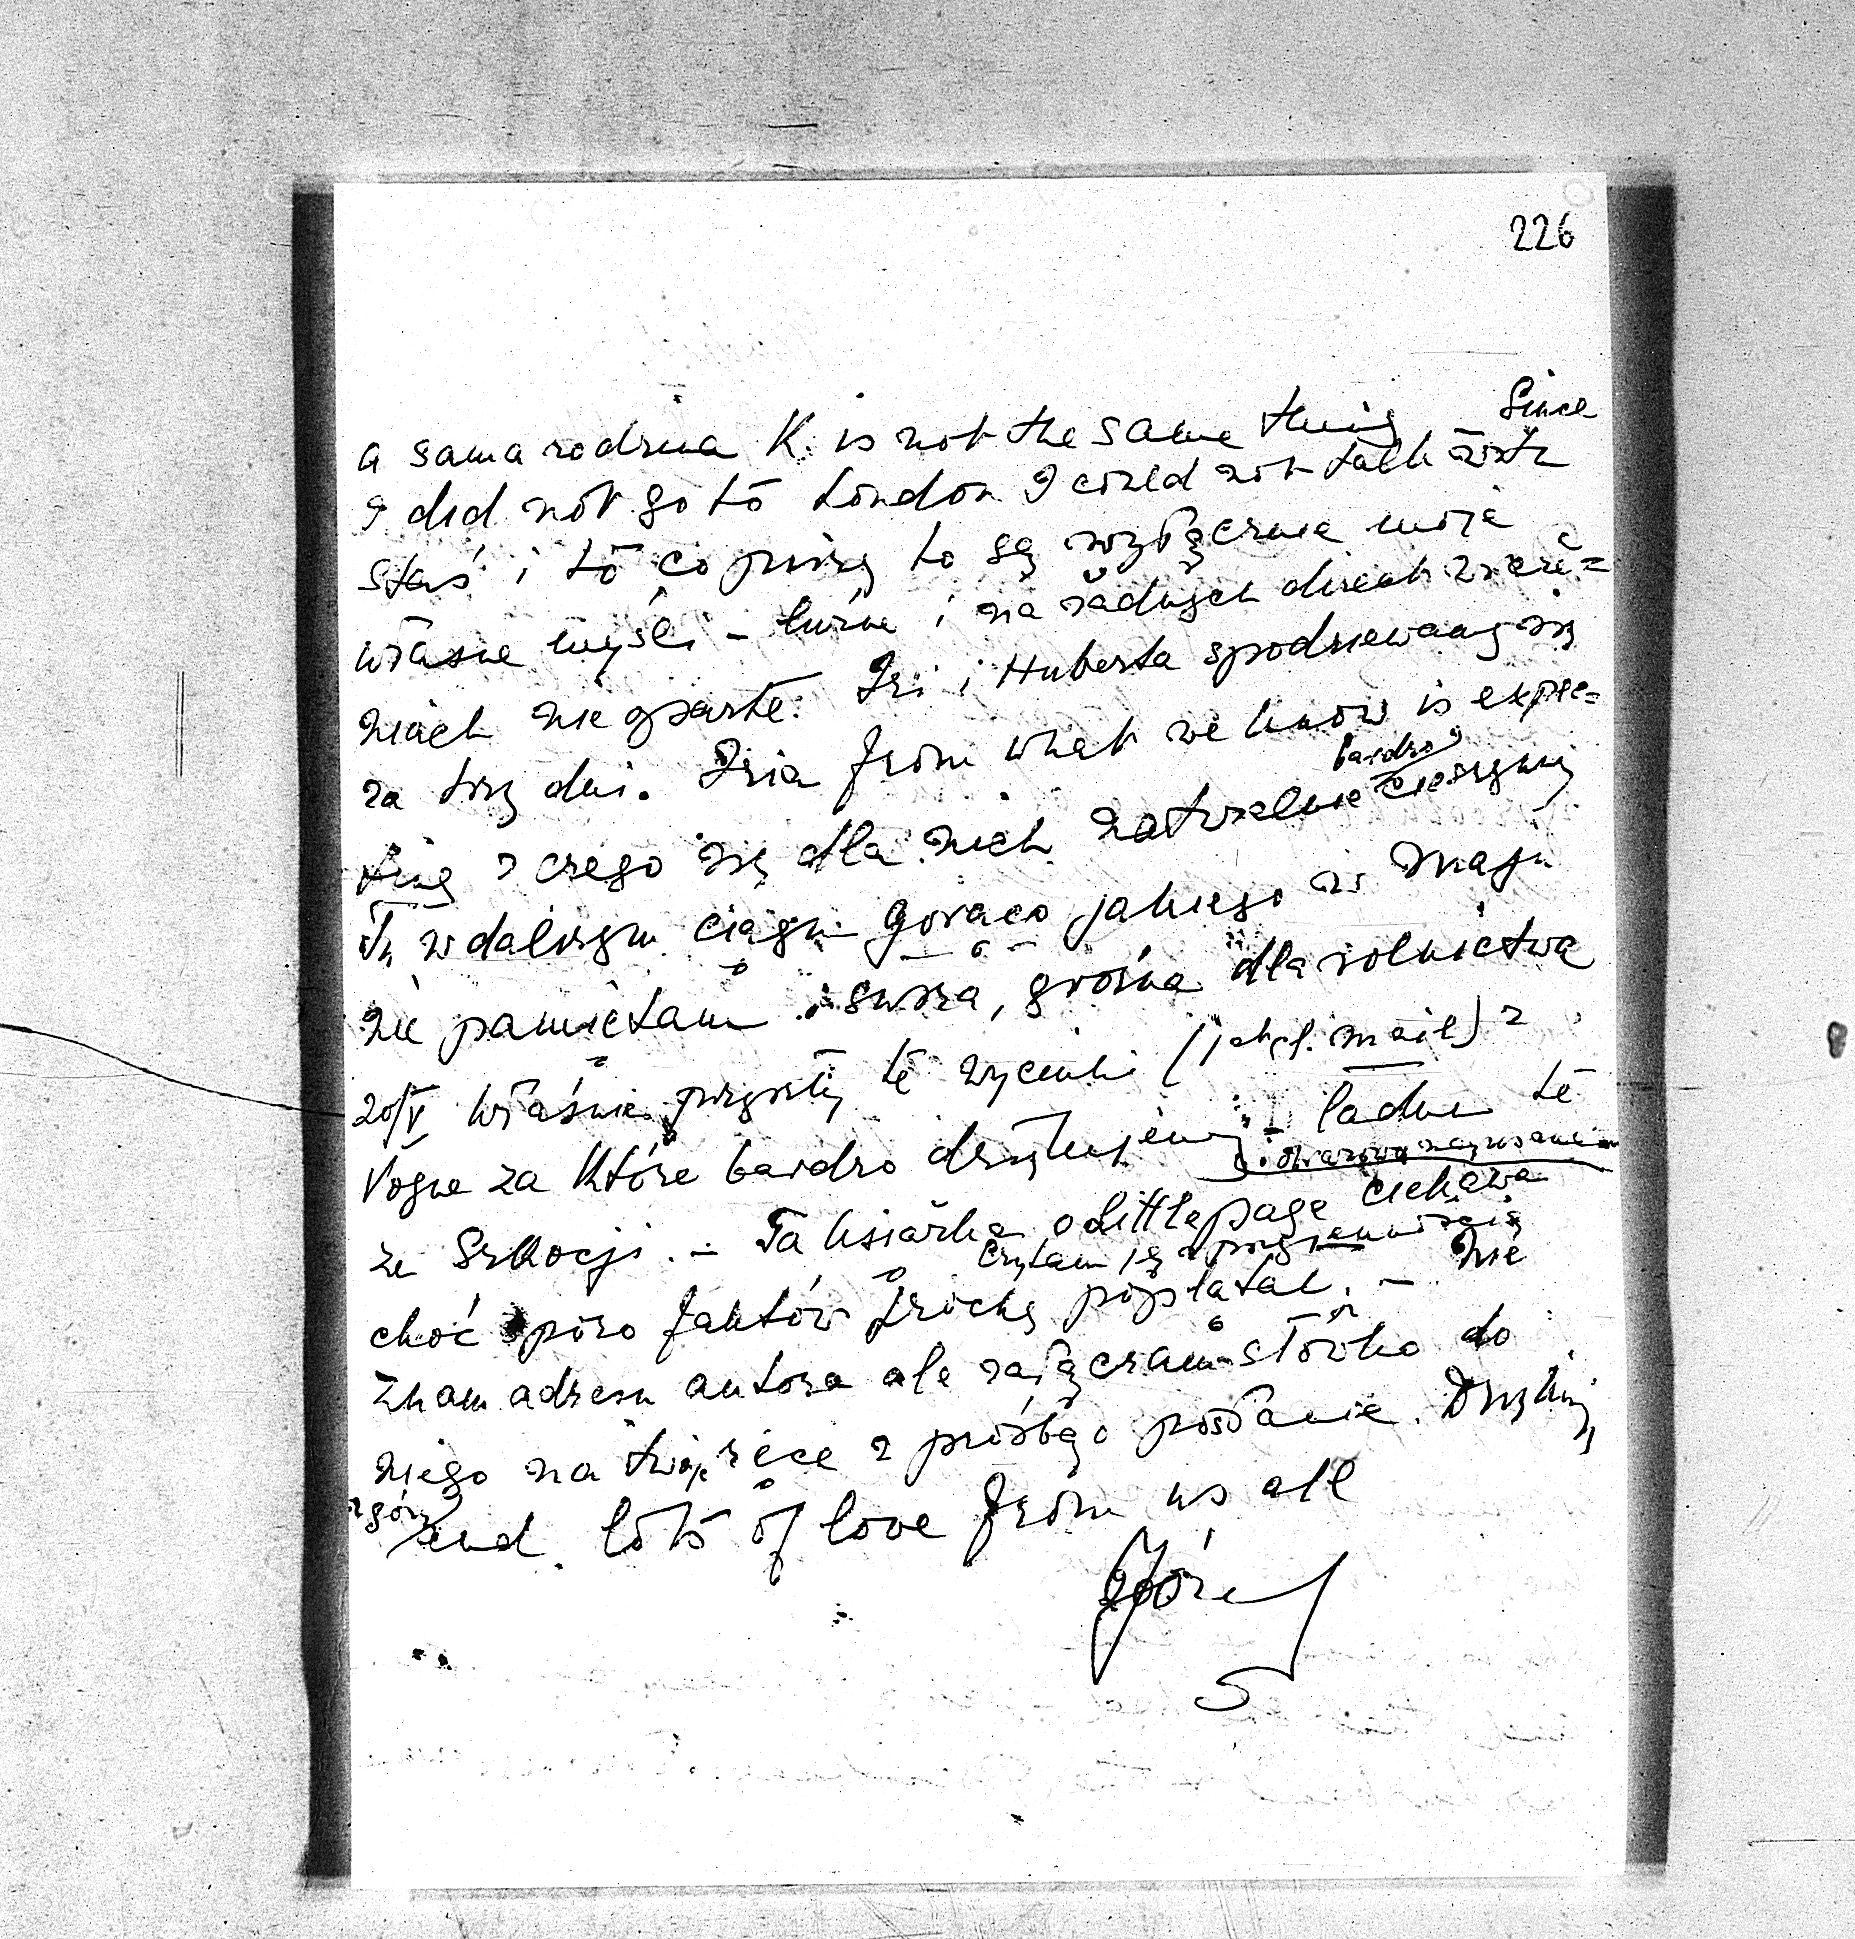 226
a sama rodzina K. is not the same thing. Since
I did not go to London I could not talk with
Staś i to co piszę to są wyłącznie moje
własne myśli – luźne i na żadnych direct zwie=
niach nie oparte. Izi i Huberta spodziewamy się
za trzy dni. Izia from what we know is expec=
ting z czego się dla nich naturalnie bardzo cieszymy
Tu w dalszym ciągu gorąco jakiego w maju
nie pamiętam i susza, groźna dla rolnictwa
20/V właśnie przyszły te wycinki (1st cl. mail) z
Vogue za które bardzo dziękujemy – ładne te
ze Szkocji. – Ta książka o Littlepage ciekawa
czytam ją z przyjemnością
choć sporo faktów trochę poplątał. – Nie
znam adresu autora ale załączam słówko do
niego na twoje ręce z prośbą o posłanie. Dzięki
z góry and lots of love from us all
Józef